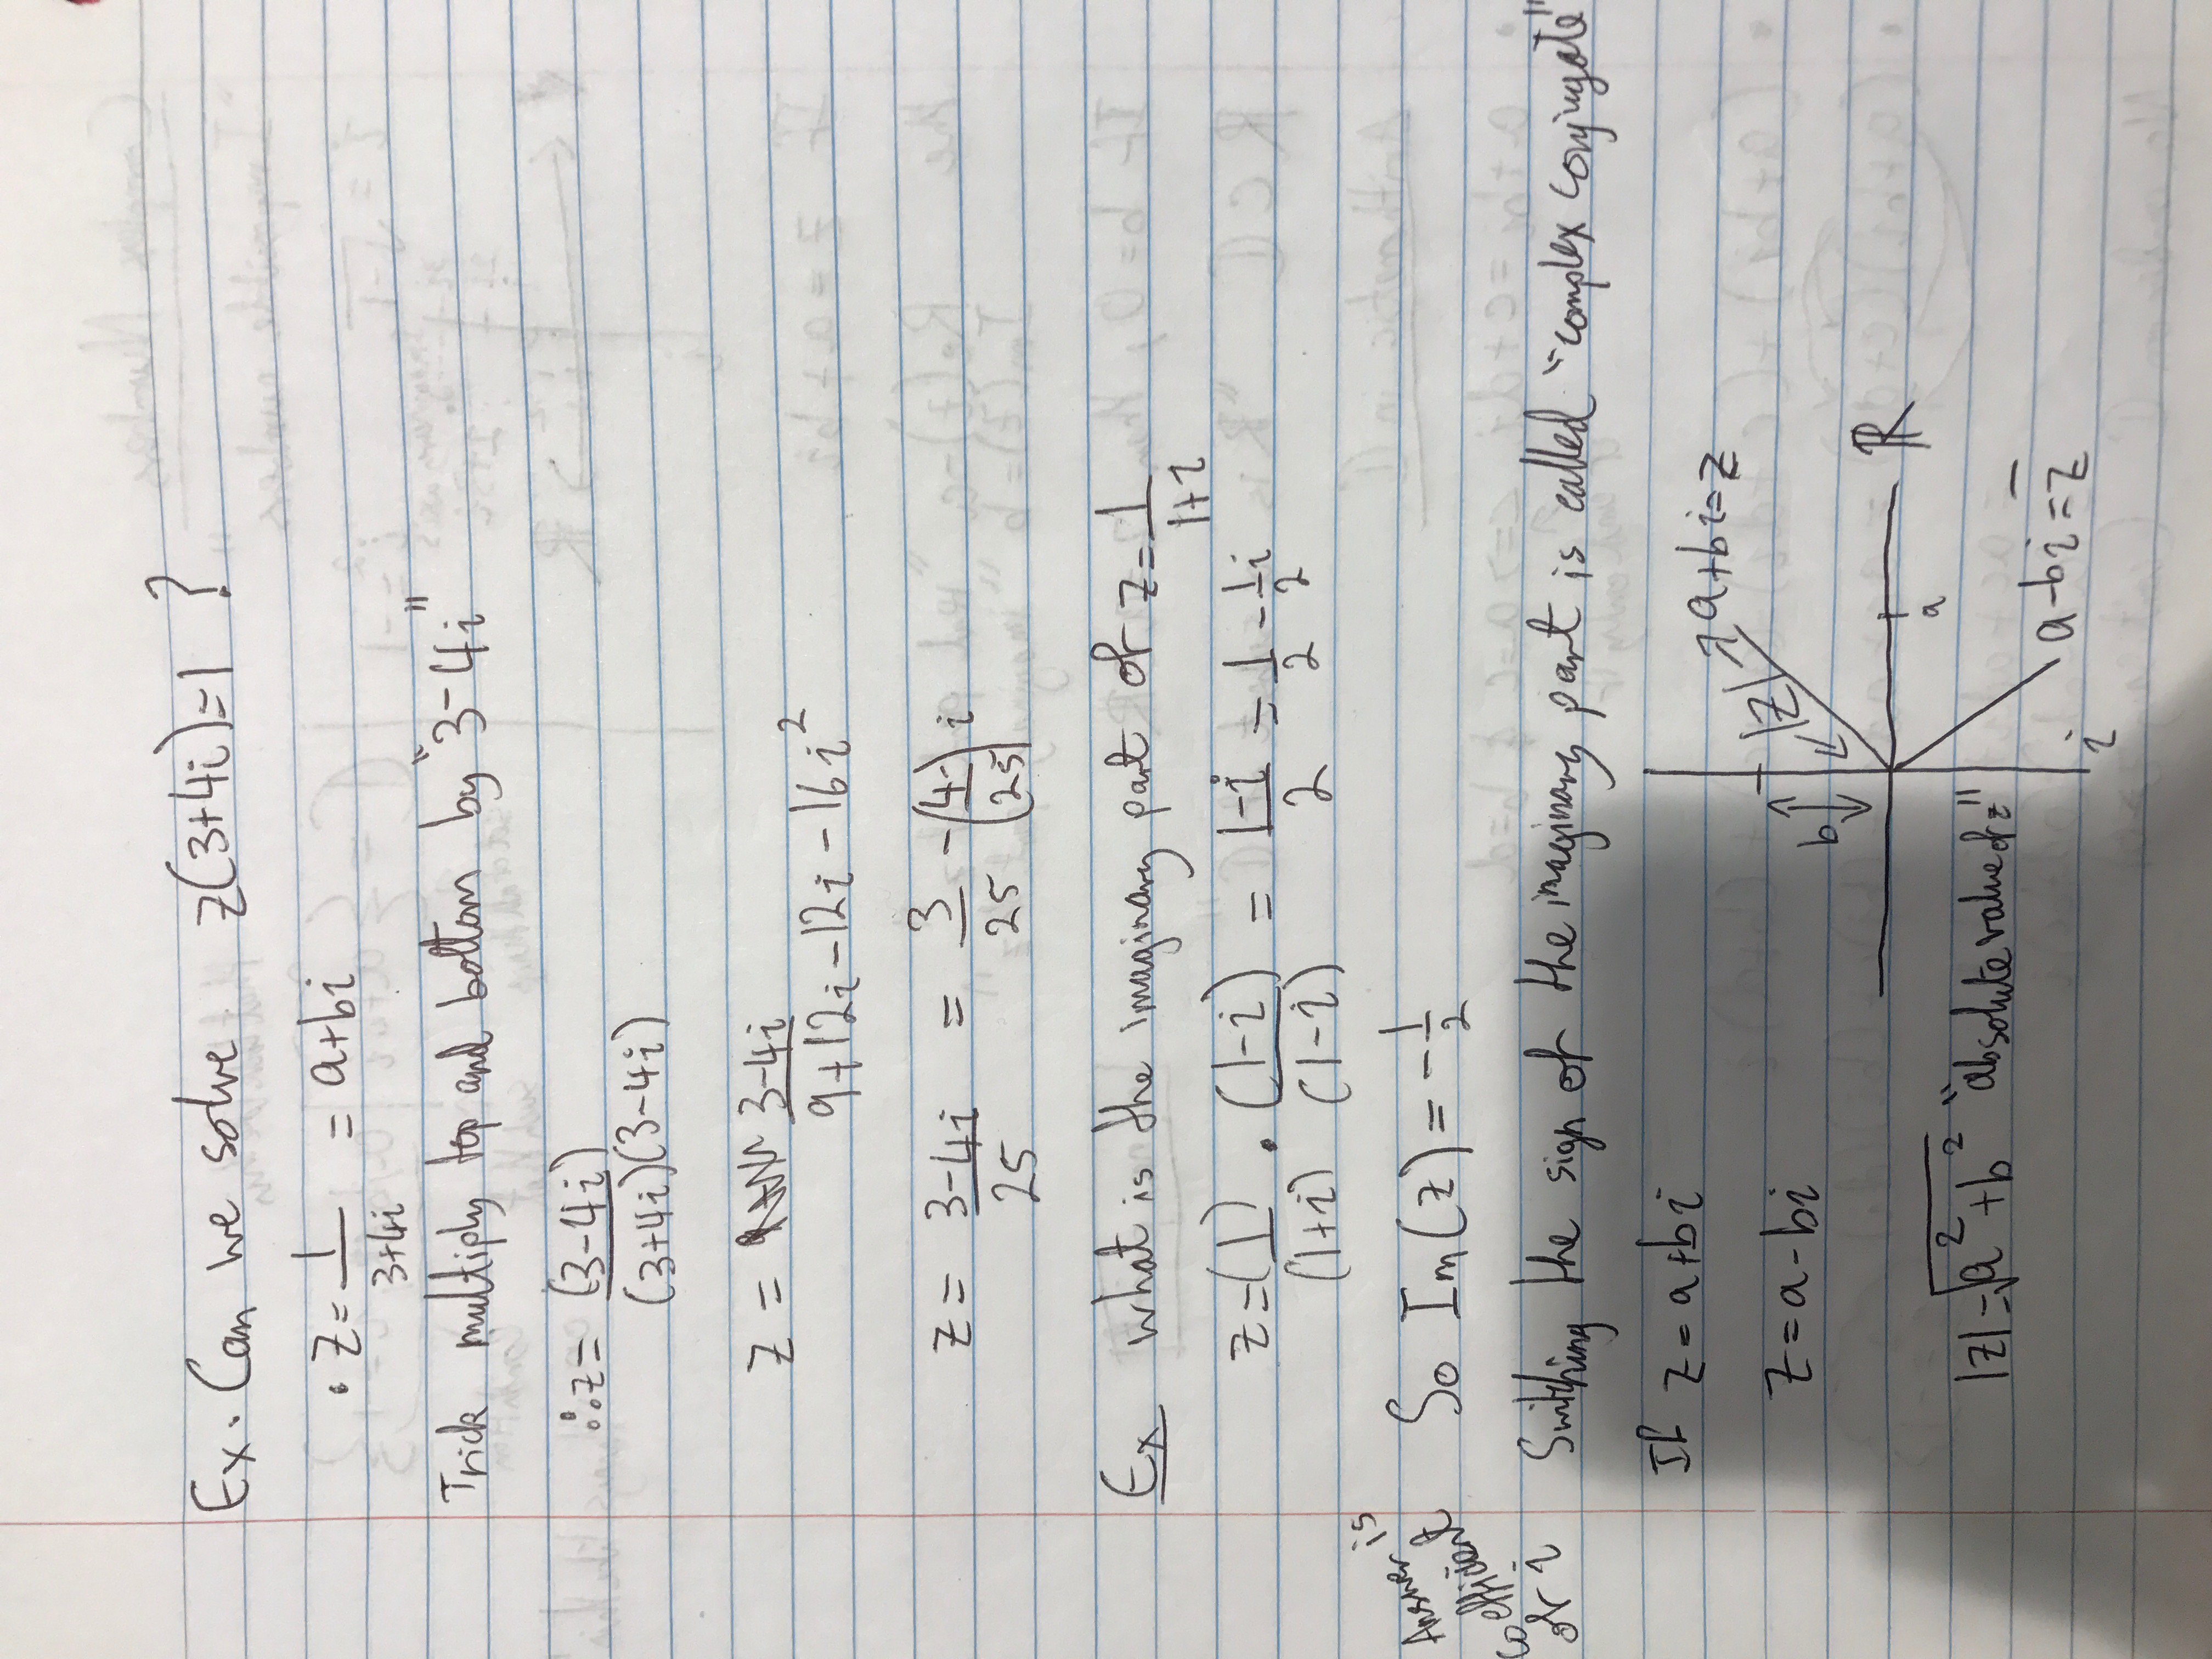 Ex. Can we solve z(3+4i)=1 ?
• z = 1/(3+4i) = a+bi
Trick multiply top and bottom by "3-4i"
∴ z = (3-4i)/((3+4i)(3-4i))
z = (3-4i)/(9+12i-12i-16i²)
z = (3-4i)/25 = 3/25 - (4/25)i
Ex what is the imaginary part of z = 1/(1+i)
z = (1)/(1+i) · (1-i)/(1-i) = (1-i)/2 = 1/2 - 1/2 i
So Im(z) = -1/2
Answer is
coefficient of
of i
Switching the sign of the imaginary part is called "complex conjugate"
If z = a+bi
z = a-bi
|z| = √(a²+b²) "absolute value of z"
a+bi=z
|z|
b
a
ℝ
i
a-bi=z̄